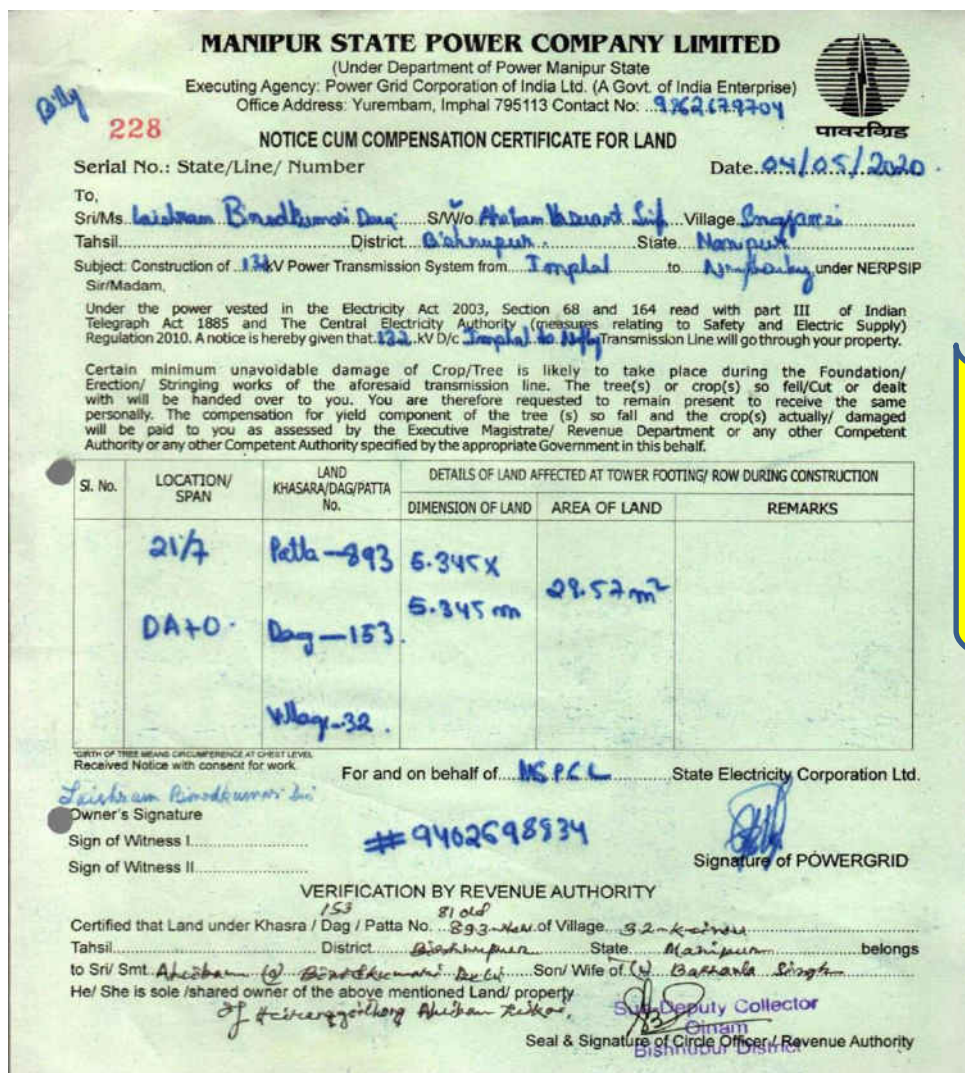 MANIPUR STATE POWER COMPANY LIMITED
(Under Department of Power Manipur State
Executing Agency: Power Grid Corporation of India Ltd. (A Govt. of India Enterprise)
Office Address: Yurembam, Imphal 795113 Contact No: ..9862679704
Billy
228
पावरग्रिड
NOTICE CUM COMPENSATION CERTIFICATE FOR LAND
Serial No.: State/Line/ Number Date..04/05/2020.
To,
Sri/Ms..Laishram Binodkumari Devi S/W/o Village
Tahsil District..Bishnupur. State..Manipur
Subject: Construction of ..132kV Power Transmission System from....Imphal to under NERPSIP
Sir/Madam,
Under the power vested in the Electricity Act 2003, Section 68 and 164 read with part III of Indian
Telegraph Act 1885 and The Central Electricity Authority (measures relating to Safety and Electric Supply)
Regulation 2010. A notice is hereby given that.132.kV D/c Imphal to Transmission Line will go through your property.
Certain minimum unavoidable damage of Crop/Tree is likely to take place during the Foundation/
Erection/ Stringing works of the aforesaid transmission line. The tree(s) or crop(s) so fell/Cut or dealt
with will be handed over to you. You are therefore requested to remain present to receive the same
personally. The compensation for yield component of the tree (s) so fall and the crop(s) actually/ damaged
will be paid to you as assessed by the Executive Magistrate/ Revenue Department or any other Competent
Authority or any other Competent Authority specified by the appropriate Government in this behalf.
Sl. No. LOCATION/ SPAN LAND KHASARA/DAG/PATTA No. DETAILS OF LAND AFFECTED AT TOWER FOOTING/ ROW DURING CONSTRUCTION
DIMENSION OF LAND AREA OF LAND REMARKS
21/7 Patta-893 5.345 x
28.57 m²
5.345 m
DA+0. Dag-153.
Village-32.
*GIRTH OF TREE MEANS CIRCUMFERENCE AT CHEST LEVEL
Received Notice with consent for work
For and on behalf of....MSPCL State Electricity Corporation Ltd.
Laishram Binodkumari Devi
Owner's Signature
Sign of Witness I
# 9402698934
Sign of Witness II
Signature of POWERGRID
VERIFICATION BY REVENUE AUTHORITY
153 81 old
Certified that Land under Khasra / Dag / Patta No. ..893-New.of Village
Tahsil District Bishnupur State Manipur belongs
to Sri/ Smt. Binodkumari Devi Son/ Wife of Singh
He/ She is sole /shared owner of the above mentioned Land/ property
of
Sub-Deputy Collector
Oinam
Seal & Signature of Circle Officer / Revenue Authority
Bishnupur District